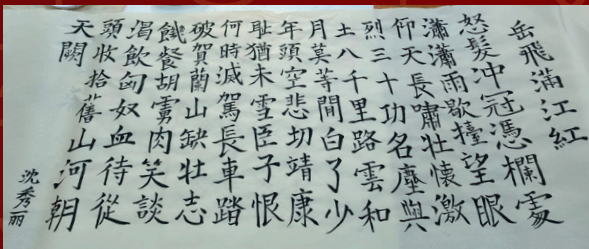 岳飛滿江紅
怒髮冲冠憑欄處
瀟瀟雨歇擡望眼
仰天長嘯壯懷激
烈三十功名塵與
土八千里路雲和
月莫等間白了少
年頭空悲切靖康
耻猶未雪臣子恨
何時滅駕長車踏
破賀蘭山缺壯志
饑餐胡虜肉笑談
渴飲匈奴血待從
頭收拾舊山河朝
天闕
沈秀丽